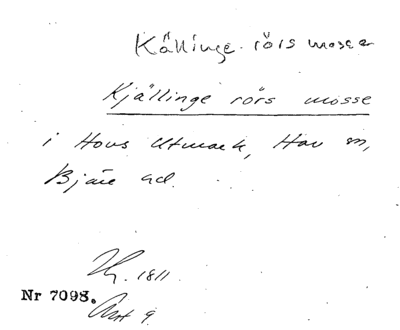 Källinge rörs mosse
Kjällinge rörs mosse
i Hovs Utmark, Hov sn,
Bjäre hd.
1811
Nr 7098.
Akt 9